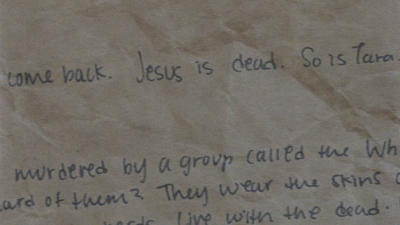 come back. Jesus is dead. So is Tara.
murdered by a group called the Wh
ard of them? They wear the skins
heads live with the dead.